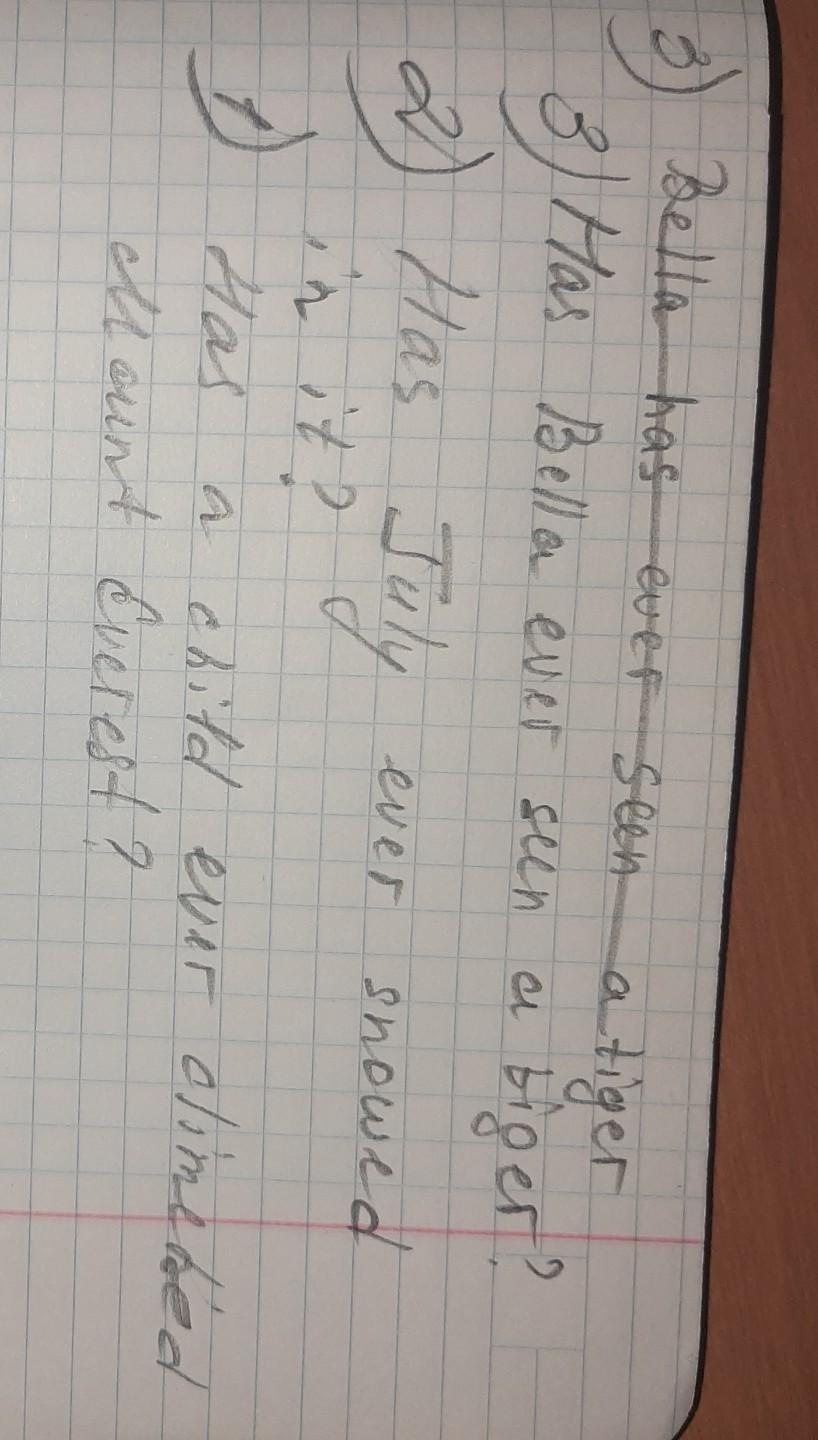 3) Bella has ever seen a tiger
3) Has Bella ever seen a tiger?
2) Has July ever snowed
in it?
1) Has a child ever climebed
Mount Everest?